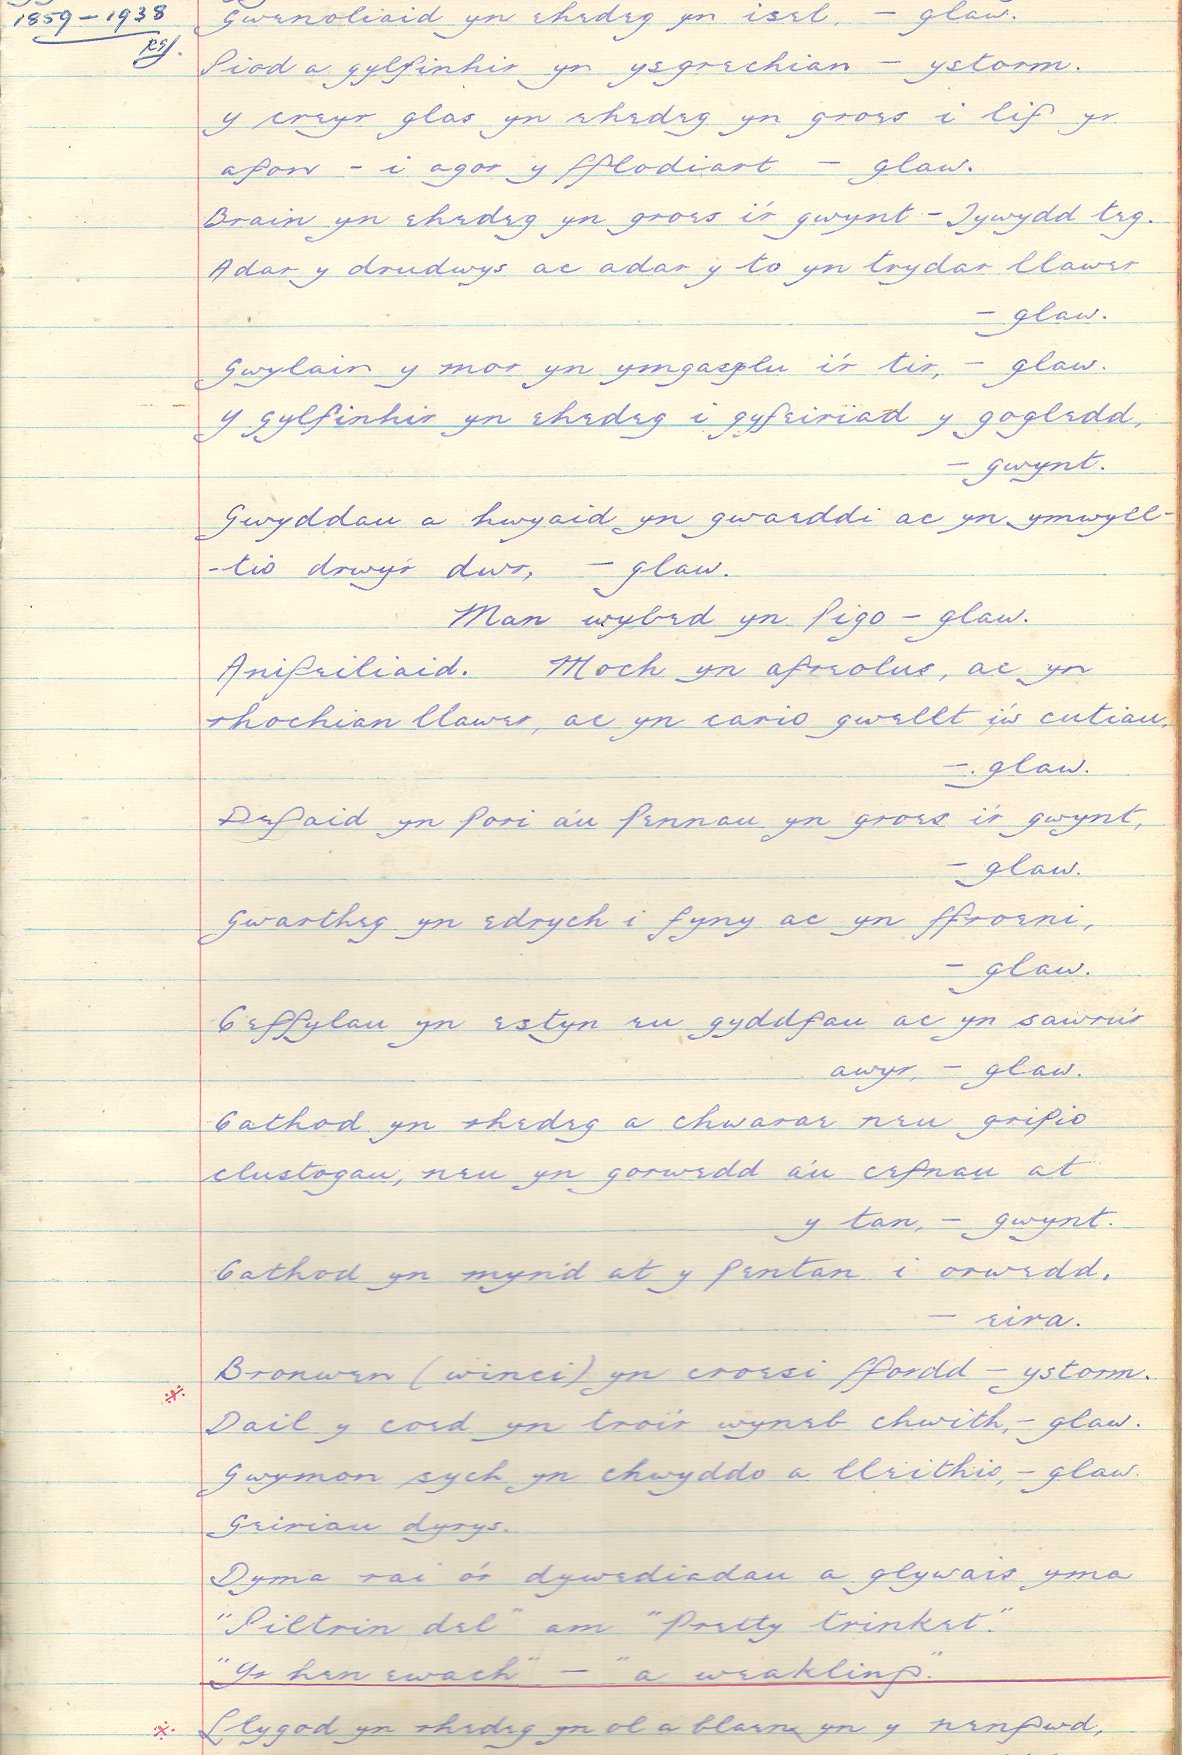 1859-1938
Gwenoliaid yn ehedeg yn isel, - glaw.
Piod a gylfinhir yn ysgrechian - ystorm.
Y creyr glas yn ehedeg yn groes i lif yr
afon - i agor y fflodiart - glaw.
Brain yn ehedeg yn groes i'r gwynt - Tywydd teg.
Adar y drudwys ac adar y to yn trydar llawer
- glaw.
Gwylain y mor yn ymgasglu i'r tir, - glaw.
Y gylfinhir yn ehedeg i gyfeiriad y gogledd,
- gwynt.
Gwyddau a hwyaid yn gwaeddi ac yn ymwyll-
-tio drwy'r dwr, - glaw.
Man wybed yn pigo - glaw.
Anifeiliaid. Moch yn afreolus, ac yn
rhochian llawer, ac yn cario gwellt i'w cutiau,
- glaw.
Defaid yn pori a'u pennau yn groes i'r gwynt,
- glaw.
Gwartheg yn edrych i fyny ac yn ffroeni,
- glaw.
Ceffylau yn estyn eu gyddfau ac yn sawru'r
awyr, - glaw.
Cathod yn rhedeg a chwarae neu gripio
clustogau, neu yn gorwedd a'u cefnau at
y tan, - gwynt.
Cathod yn myn'd at y pentan i orwedd,
- eira.
Bronwen (winci) yn croesi ffordd - ystorm.
Dail y coed yn troi'r wyneb chwith, - glaw.
Gwymon sych yn chwyddo a lleithio, - glaw.
Geiriau dyrys.
Dyma rai o'r dywediadau a glywais yma
"Piltrin del" am "Pretty trinket".
"Yr hen ewach" - "a weakling".
Llygod yn rhedeg yn ol a blaen yn y nenfwd,